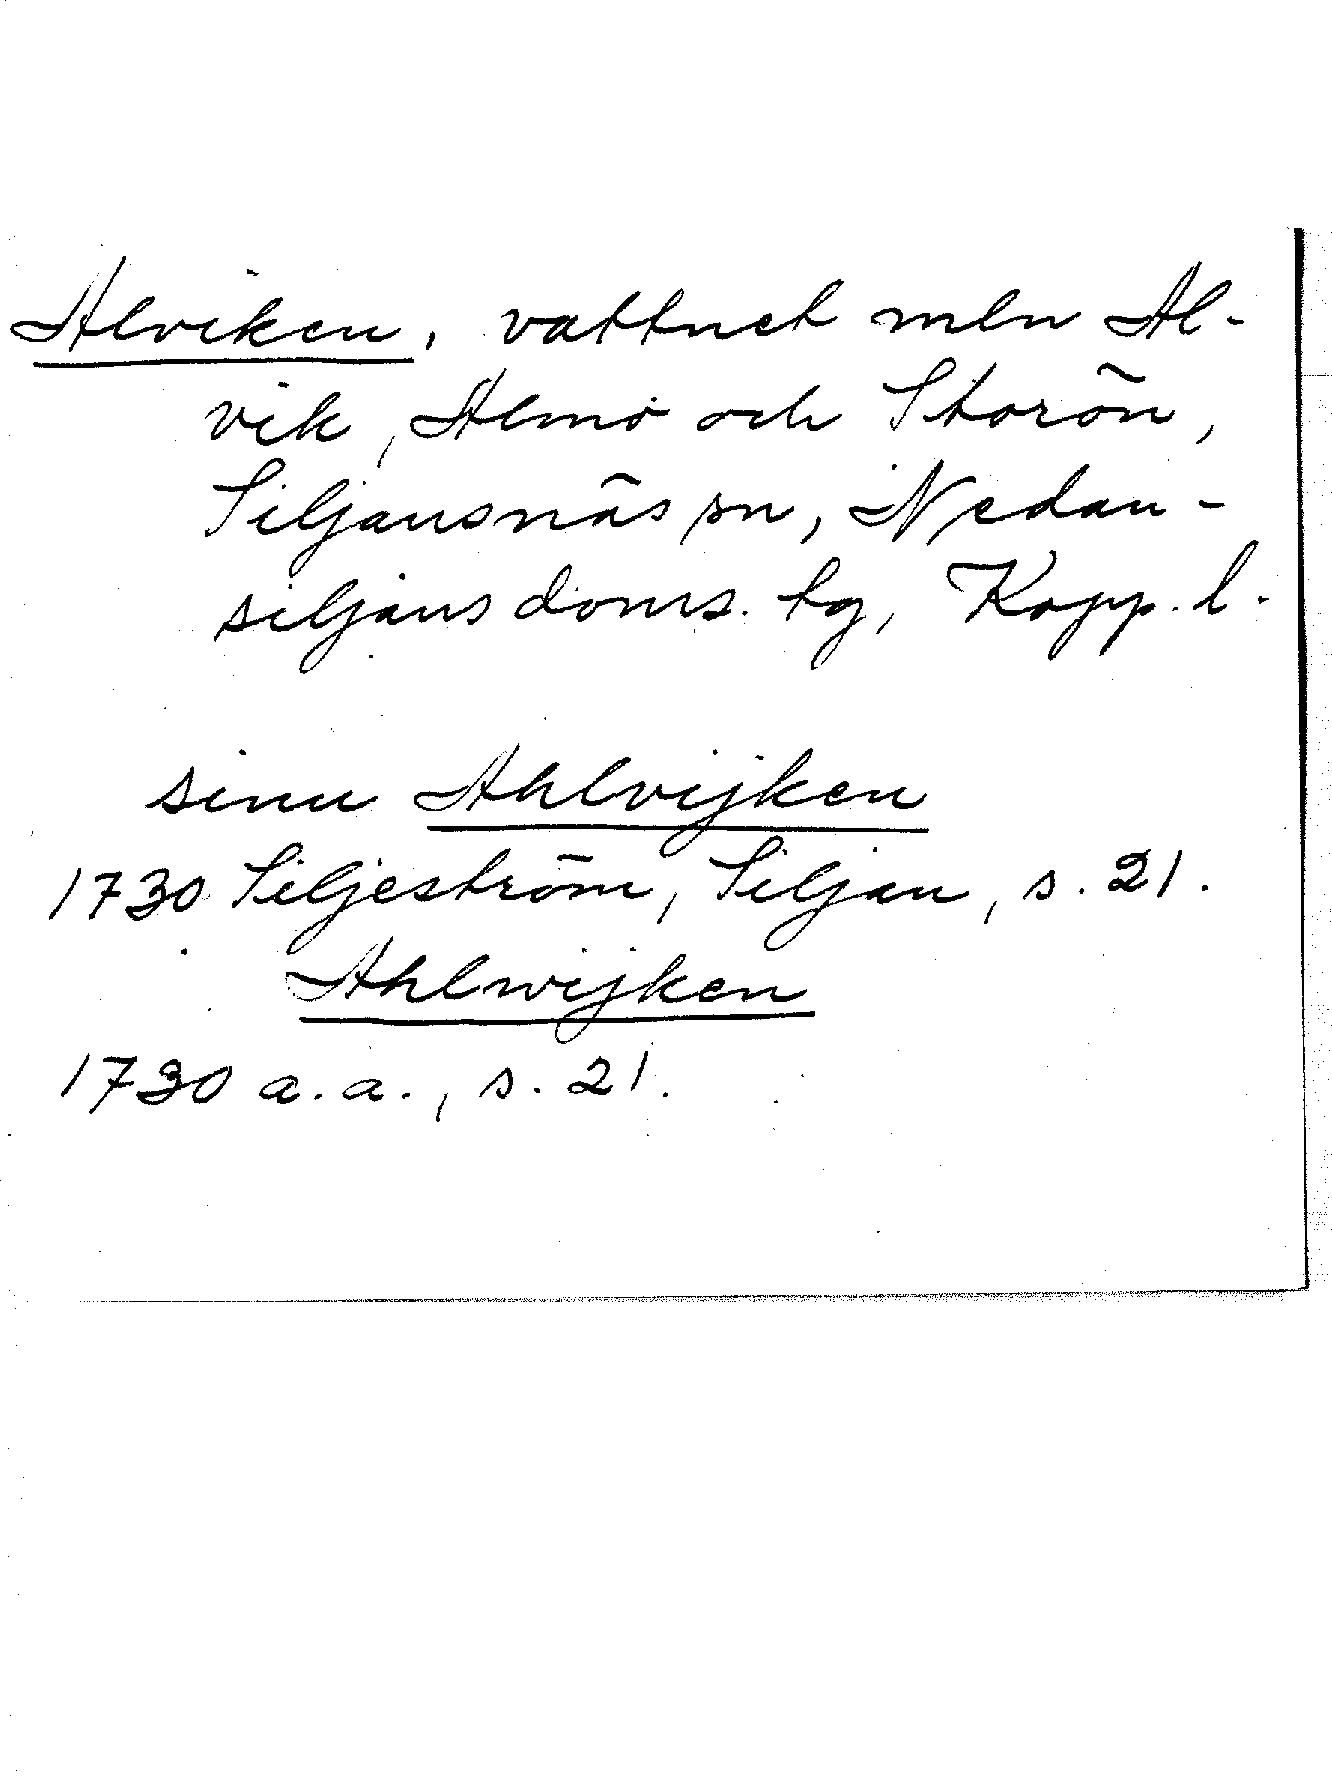 Alviken, vattnet mln Al-
vik, Almo och Storön,
Siljansnäs sn, Nedan-
siljans doms. tg, Kopp. l.
sinu Ahlvijken
1730 Siljeström, Siljan, s. 21.
Ahlwijken
1730 a.a., s. 21.